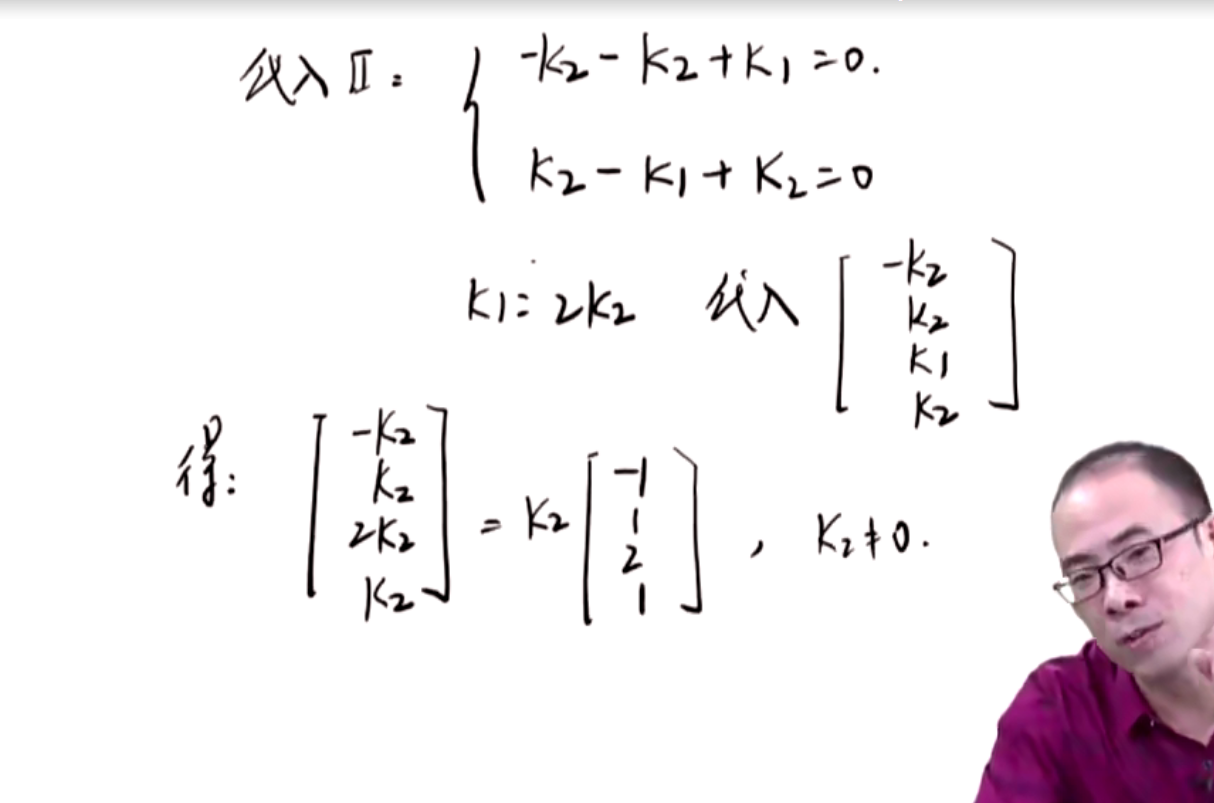 代入Ⅱ: { -k₂ - k₂ + k₁ = 0.
k₂ - k₁ + k₂ = 0
k₁ = 2k₂ 代入 [ -k₂
k₂
k₁
k₂ ]
得: [ -k₂
k₂
2k₂
k₂ ] = k₂ [ -1
1
2
1 ] , k₂ ≠ 0.